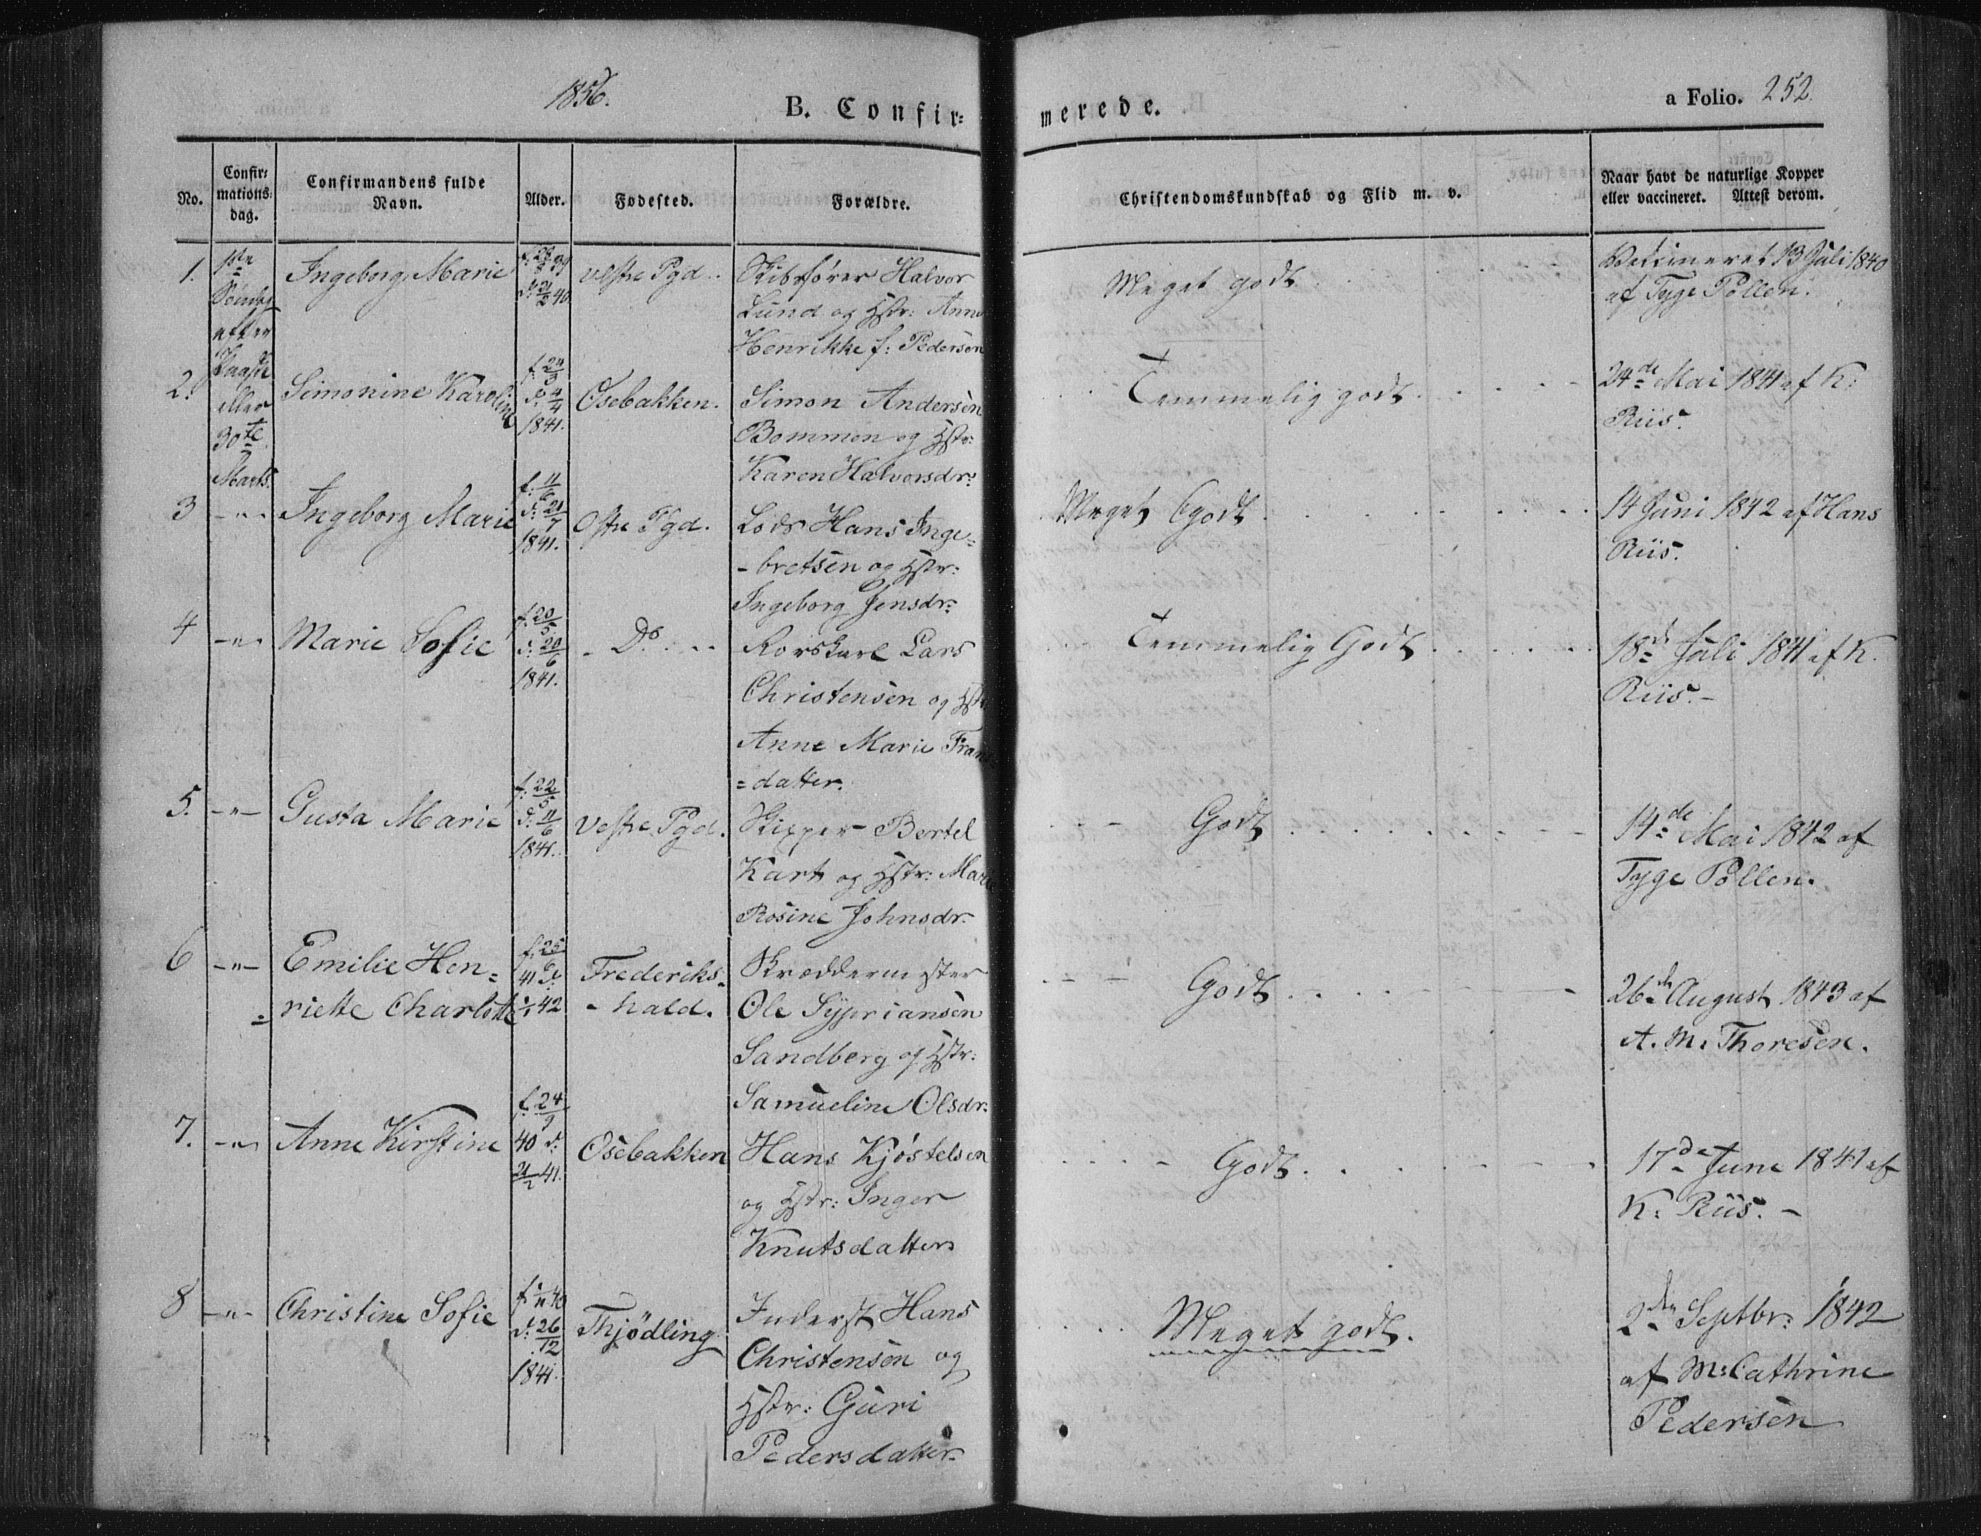 1856.
B. Confir=
merede.
a Folio. 252.
No.
Confir=
mations=
dag.
Confirmandens fulde
Navn.
Alder.
Fødested.
Forældre.
Christendomskundskab og Flid m. v.
Naar havt de naturlige Kopper
eller vaccineret. Attest derom.
1.
1ste
Søndag
efter
Paaske
eller
30te
Marts.
Ingeborg Marie
vestre Pgd.
Skibsfører Halvor
Lund og Hstr: Anne
Henrikke f: Pedersen
Meget godt
Vaccineret 13 Juli 1840
af Tyge Pollen.
2.
Simonine Karoline
f. 24/3
d. 4/4
1841.
Osebakken.
Simon Andersen
Bommen og Hstr:
Karen Halvorsdr:
Temmelig godt.
24de Mai 1841 af K:
Riis.
3 -"-
Ingeborg Marie
f. 11/6
d. 21/7
1841.
Østre Pgd.
Lods Hans Inge=
-bretsen og Hstr:
Ingeborg Jensdr:
Meget Godt
14 Juni 1842 af Hans
Riis.
4 -"-
Marie Sofie
f. 20/5
d. 20/6
1841.
- Do. -
Rorskarl Lars
Christensen og Hstr
Anne Marie Frans
=datter.
Temmelig Godt
18de Juli 1841 af K.
Riis.-
5. -"-
Gusta Marie
f. 22/5
d. 11/6
1841.
Vestre Pgd.
Skipper Bertel
Kart og Hstr: Marie
Rosine Johnsdr.
Godt
14de Mai 1842 af
Tyge Pollen.
6 -"-
Emilie Hen=
=riette Charlotte
f. 25/6
41 d.
42
Frederiks=
-hald.
Skræddermester
Ole Syprianson
Sandberg og Hstr:
Samueline Olsdr:
Godt
26de August 1843 af
A. M. Thoresen.
7. -"-
Anne Kirstine
f. 24/9
40 d.
21/2 41.
Osebakken
Hans Kjøstelsen
og Hstr: Inger
Knutsdatter
Godt.
17de June 1841 af
K: Riis. -
8 -"-
Christine Sofie
d. 26/12
1841.
Thjödling
Inderst Hans
Christensen og
Hstr: Guri
Pedersdatter
Meget godt.
2den Septbr: 1842
af M: Cathrine
Pedersen